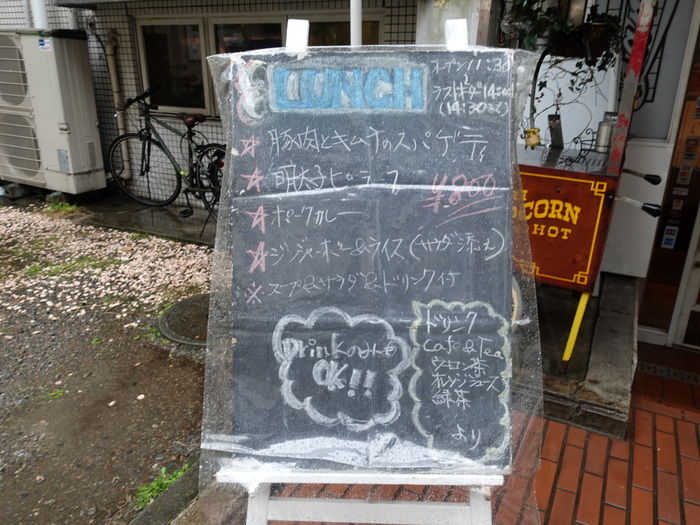 LUNCH
オープン11:30
ラストオーダー14:00
(14:30まで)
☆ 豚肉とキムチのスパゲティ
☆ 明太子ピラフ
¥860
☆ ポークカレー
☆ ジンジャーポーク&ライス(サラダ添え)
※ スープ&サラダ&ドリンク付
Drinkのみも
OK!!
ドリンク
Cafe & Tea
ウーロン茶
オレンジジュース
緑茶
より
CORN
HOT